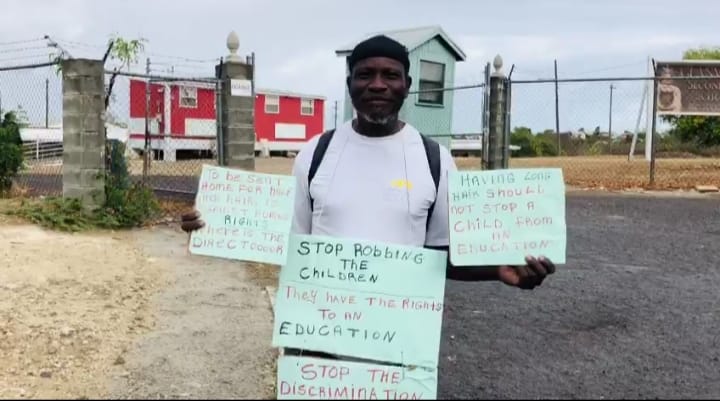 TO BE SENT
HOME FOR
HAIR IS
HUMAN
RIGHTS
WHERE IS THE
DIRECTOOOOR
STOP ROBBING
THE
CHILDREN
THEY HAVE THE RIGHTS
TO AN
EDUCATION
'STOP THE
DISCRIMINATION
HAVING LONG
HAIR SHOULD
NOT STOP A
CHILD FROM
AN
EDUCATION